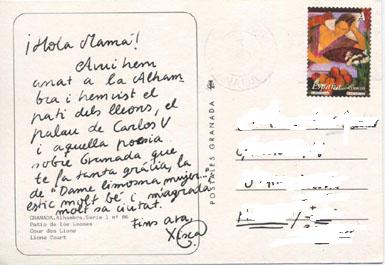 ¡Hola Mamá!
Avui hem
anat a la Alham-
bra i hem vist el
pati dels lleons, el
palau de Carlos V
i aquella poesia
sobre Granada que
te fa tanta gràcia, la
de "Dame limosna mujer..."
estic molt bé i m'agrada
molt sa ciutat.
Fins ara,
Xisca
GRANADA. Alhambra. Serie 1 nº 86
Patio de los Leones
Cour des Lions
Lions Court
POSTALES GRANADA
España